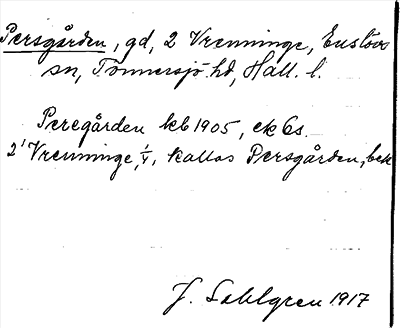 Persgården, gd, 2 Vrenninge, Enslövs
sn, Tönnersjö hd, Hall. l.
Peregården kb 1905, ek bs.
2' Vrenninge, 1/4, kallas Persgården, bek
J. Sahlgren 1917